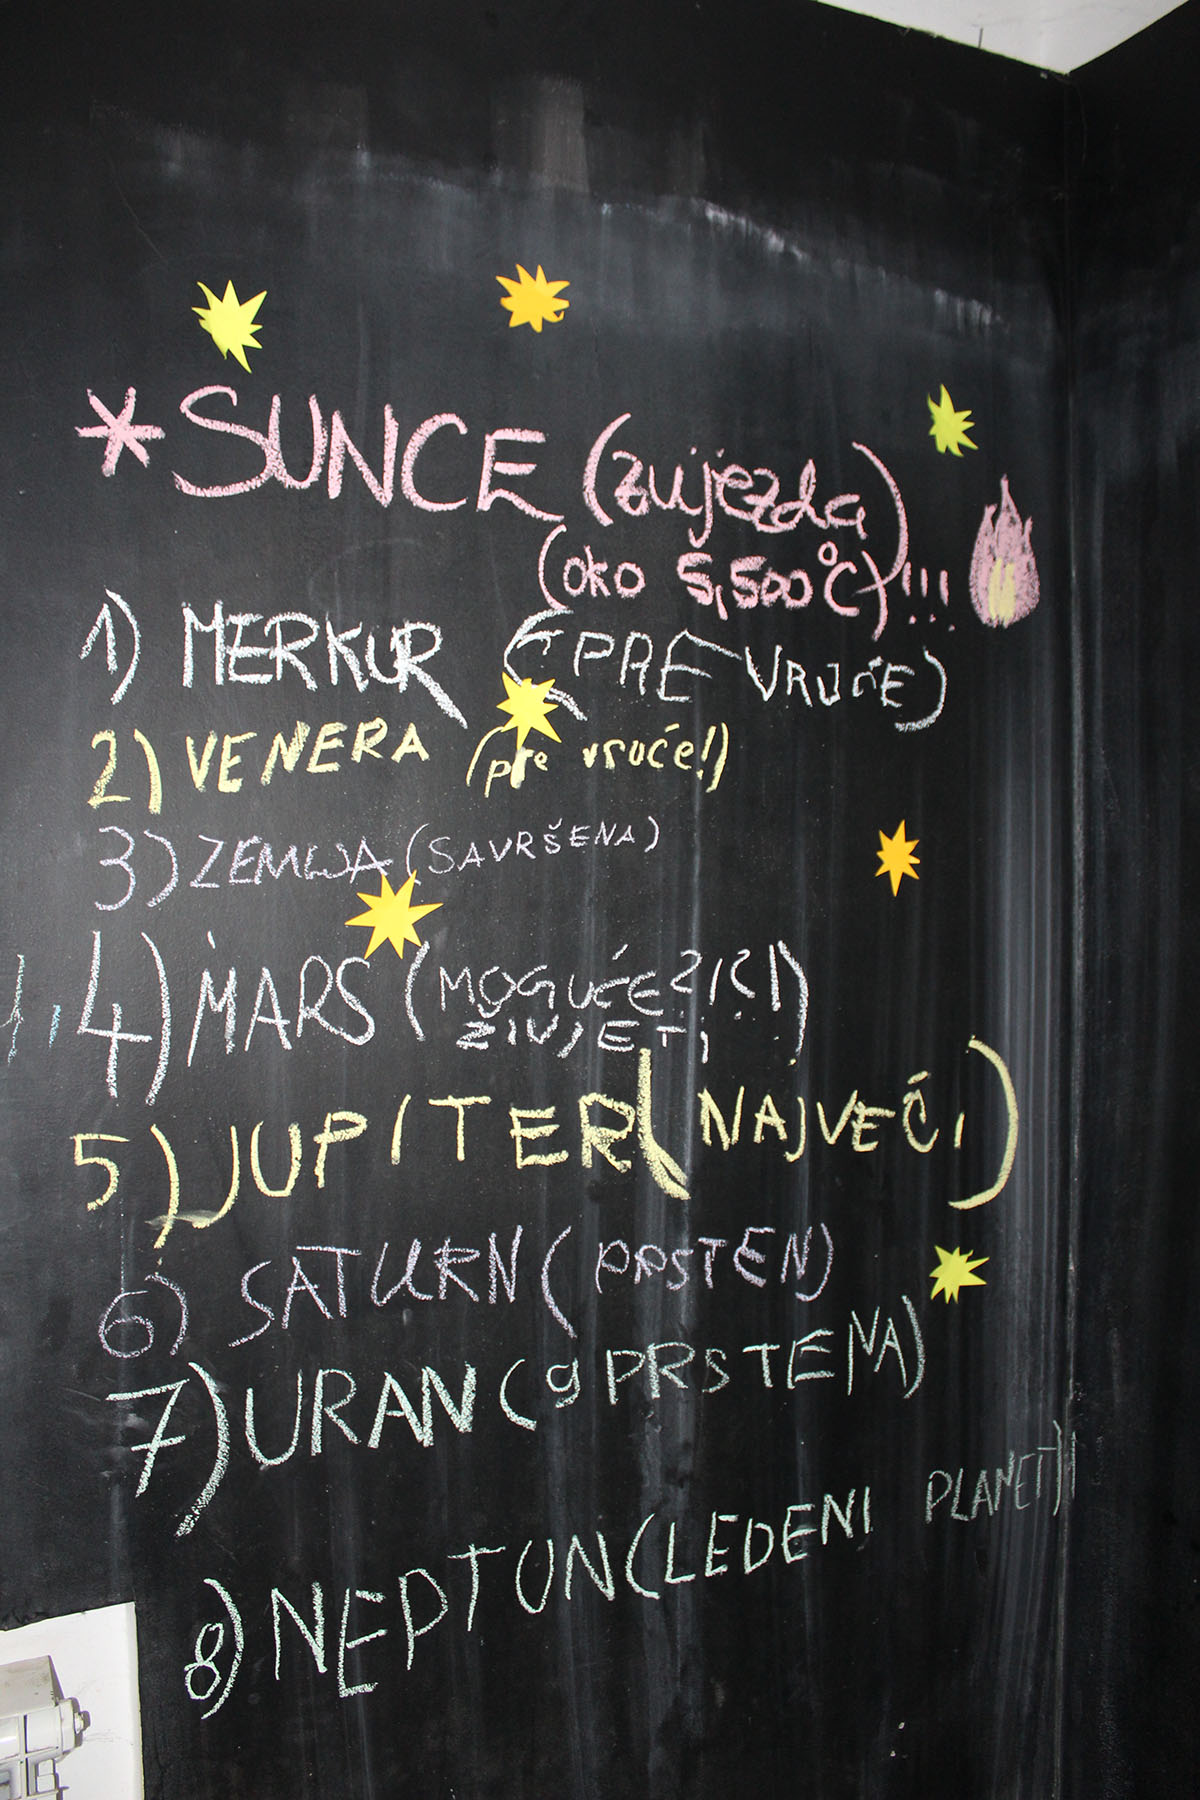 * SUNCE (zvijezda)
(oko 5,500°C)!!!
1) MERKUR (PRE VRUĆE)
2) VENERA (pre vruće!)
3) ZEMLJA (SAVRŠENA)
4) MARS (MOGUĆE
ŽIVJETI
5) JUPITER (NAJVEĆI)
6) SATURN (PRSTEN)
7) URAN (9 PRSTENA)
8) NEPTUN (LEDENI PLANET)